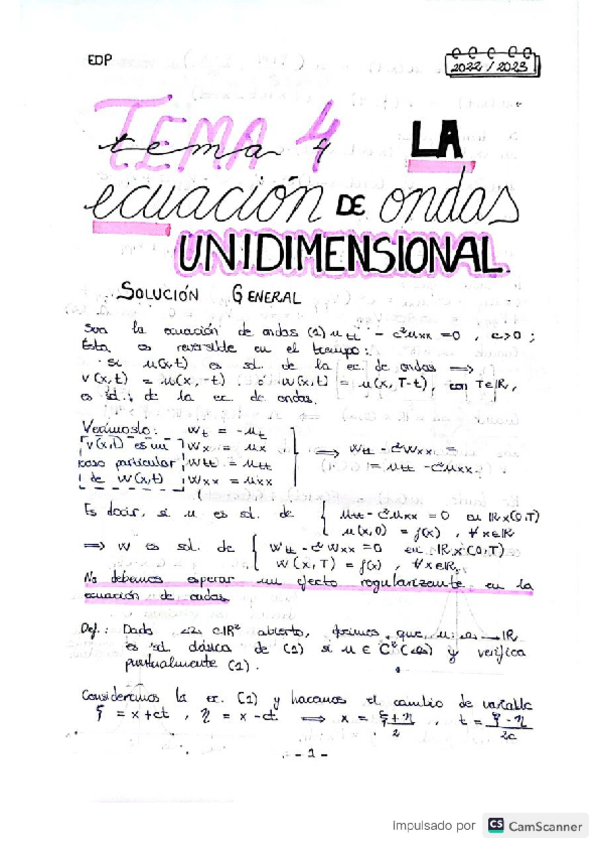 EDP
2022/2023
TEMA 4
tema 4 LA
ecuación DE ondas
UNIDIMENSIONAL.
SOLUCIÓN GENERAL
Sea la ecuación de ondas (1) u_tt - c²u_xx = 0, c>0;
Esta es reversible en el tiempo:
si u(x,t) es sol. de la ec. de ondas ⟹
v(x,t) = u(x,-t) ó w(x,t) = u(x,T-t), con T∈ℝ,
es sol. de la ec. de ondas.
Veámoslo: w_t = -u_t
v(x,t) es un w_x = u_x ⟹ w_tt - c²w_xx =
caso particular w_tt = u_tt = u_tt - c²u_xx.
de w(x,t) w_xx = u_xx
Es decir, si u es sol. de { u_tt - c²u_xx = 0 en ℝx(0,T)
u(x,0) = f(x), ∀x∈ℝ
⟹ w es sol. de { w_tt - c²w_xx = 0 en ℝx(0,T)
w(x,T) = f(x), ∀x∈ℝ.
No debemos esperar un efecto regularizante en la
ecuación de ondas
Def.: Dado Ω ⊂ ℝ² abierto, decimos que u: Ω → ℝ
es sol. clásica de (1) si u ∈ C²(Ω) y verifica
puntualmente (1).
Consideramos la ec. (1) y hacemos el cambio de variable
ξ = x+ct, η = x-ct ⟹ x = (ξ+η)/2, t = (ξ-η)/2c
- 1 -
Impulsado por CS CamScanner